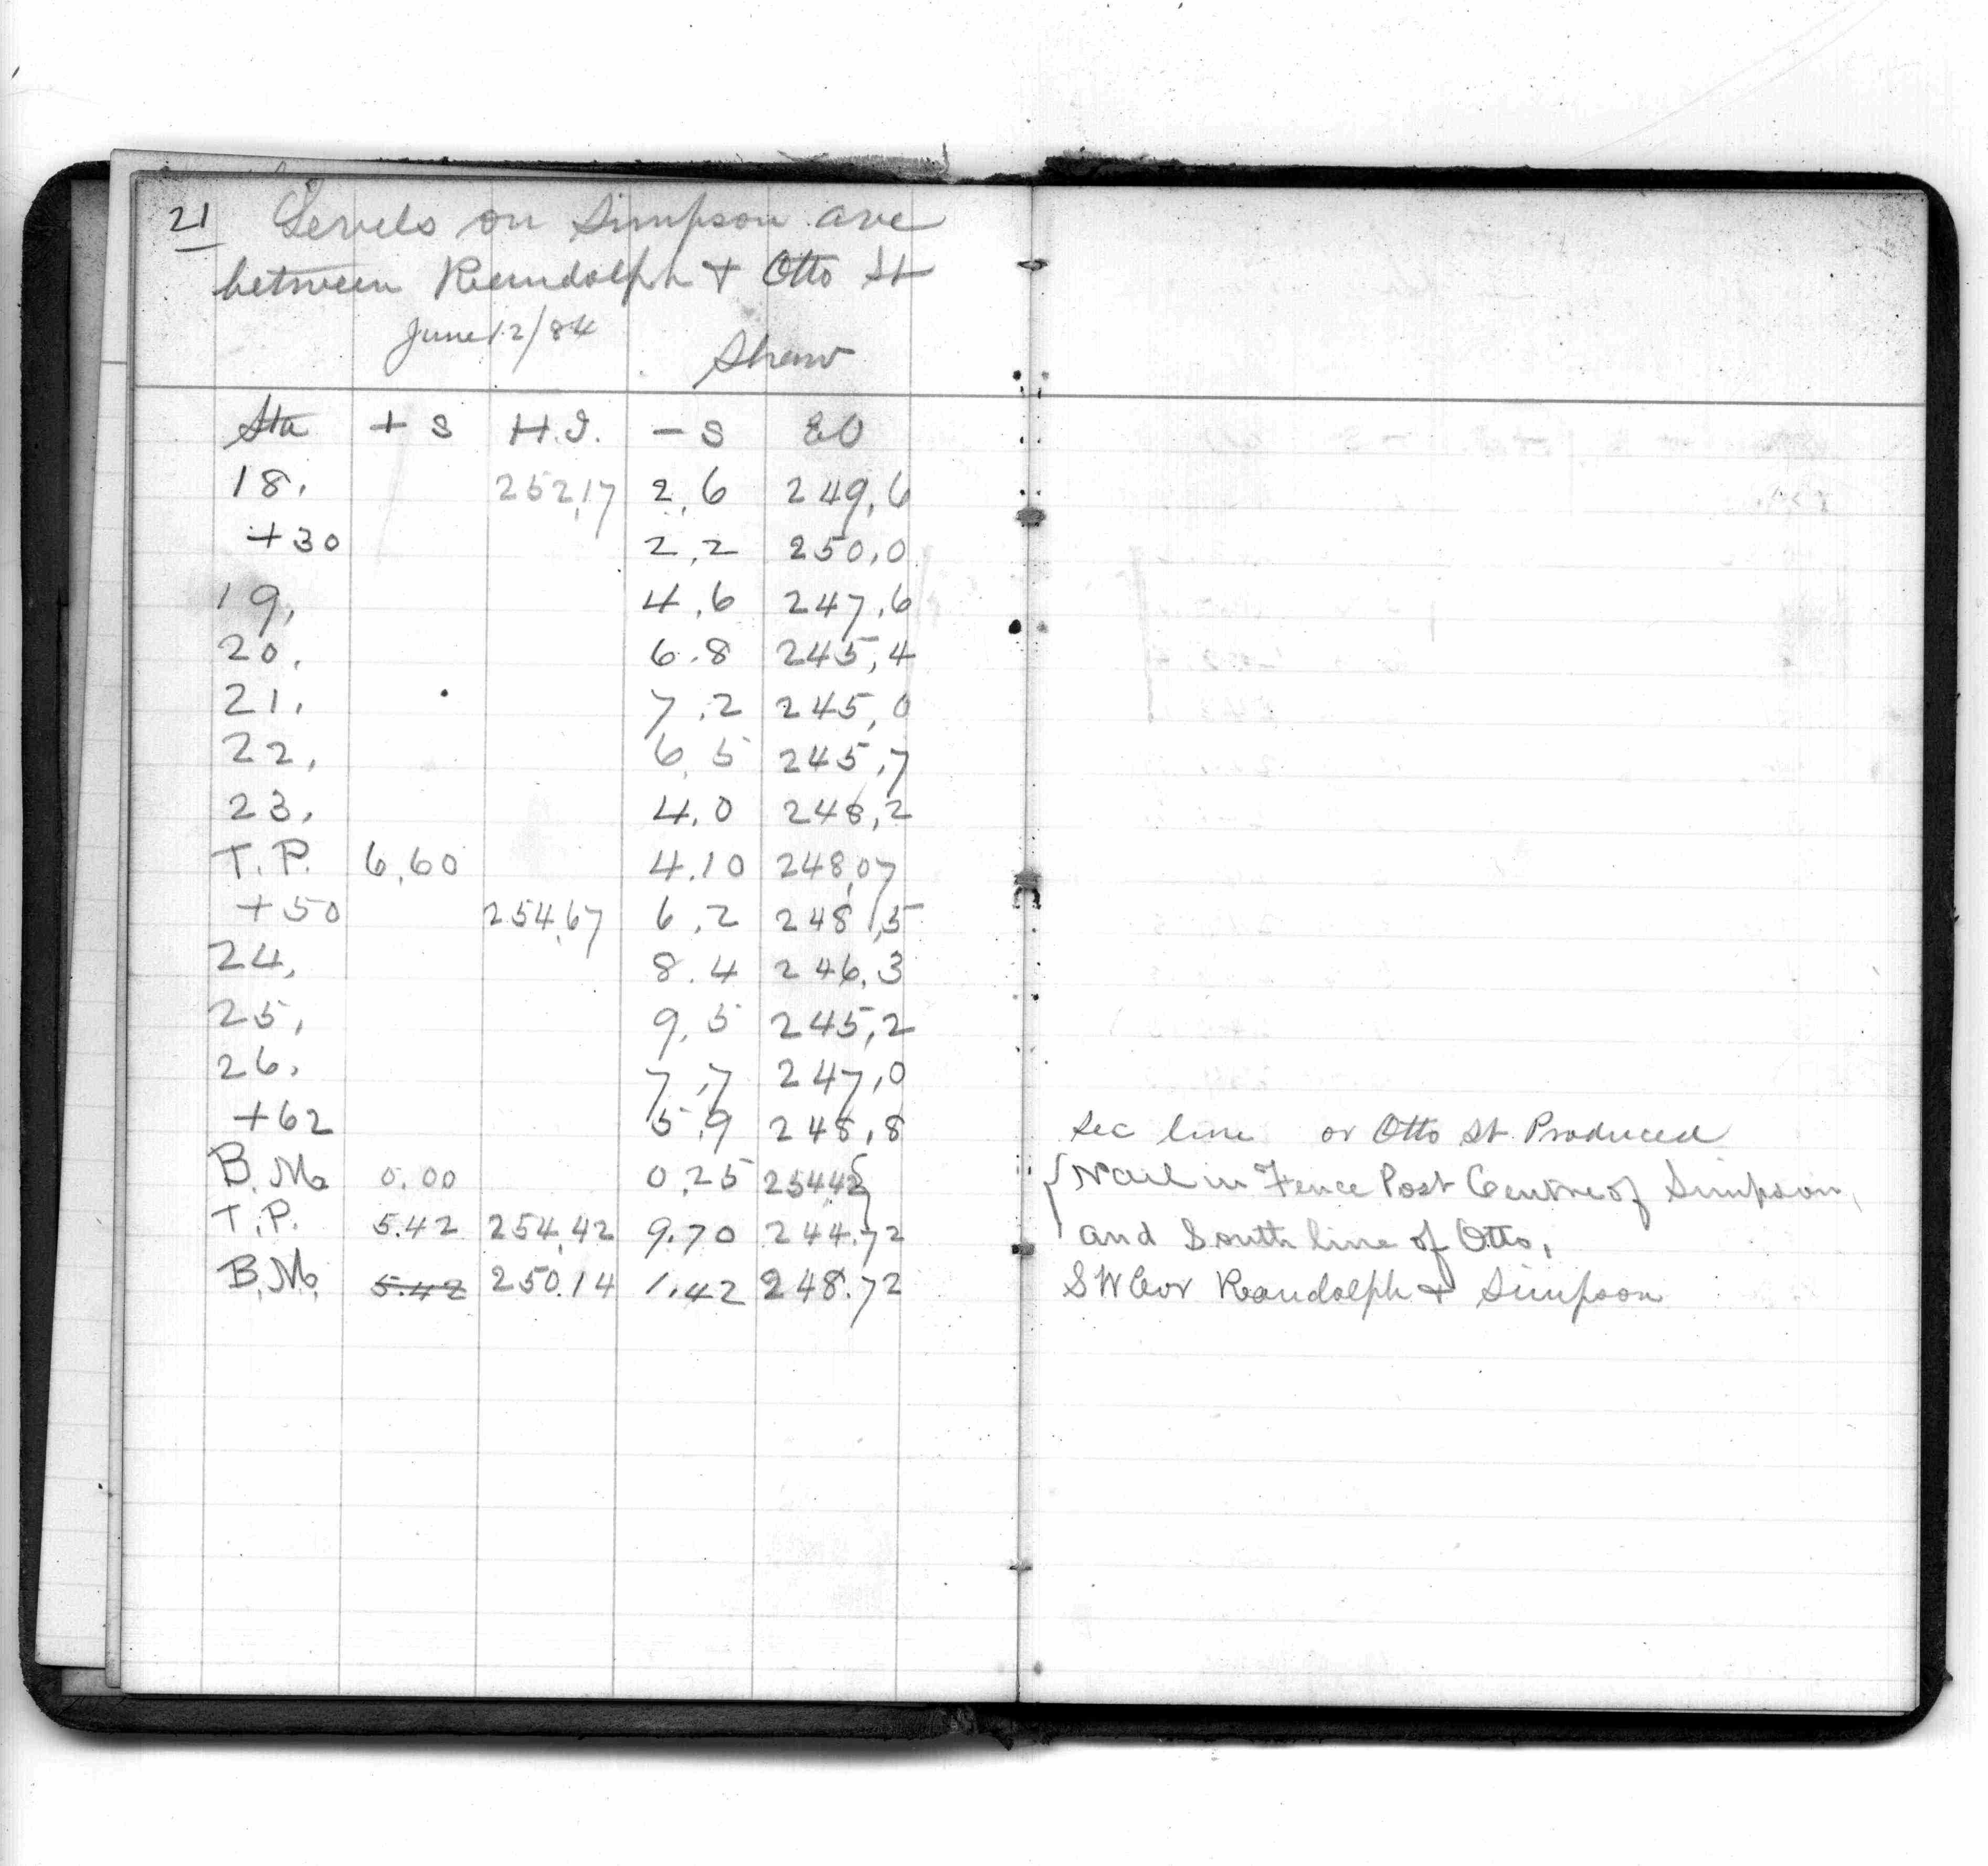 21 Levels on Simpson ave
between Randolph + Otto St
June 12/84
Shaw
Sta + S H.I. - S El
18. 252.17 2.6 249.6
+30 2.2 250.0
19. 4.6 247.6
20. 6.8 245.4
21. 7.2 245.0
22. 6.5 245.7
23. 4.0 248.2
T.P. 6.60 4.10 248.07
+50 254.67 6.2 248.5
24. 8.4 246.3
25. 9.5 245.2
26. 7.7 247.0
+62 5.9 248.8 Sec line or Otto St. Produced
B.M. 0.00 0.25 254.42 { Nail in Fence Post Centre of Simpson,
T.P. 5.42 254.42 9.70 244.72 and South line of Otto,
B.M. 5.42 250.14 1.42 248.72 S W Cor Randolph + Simpson